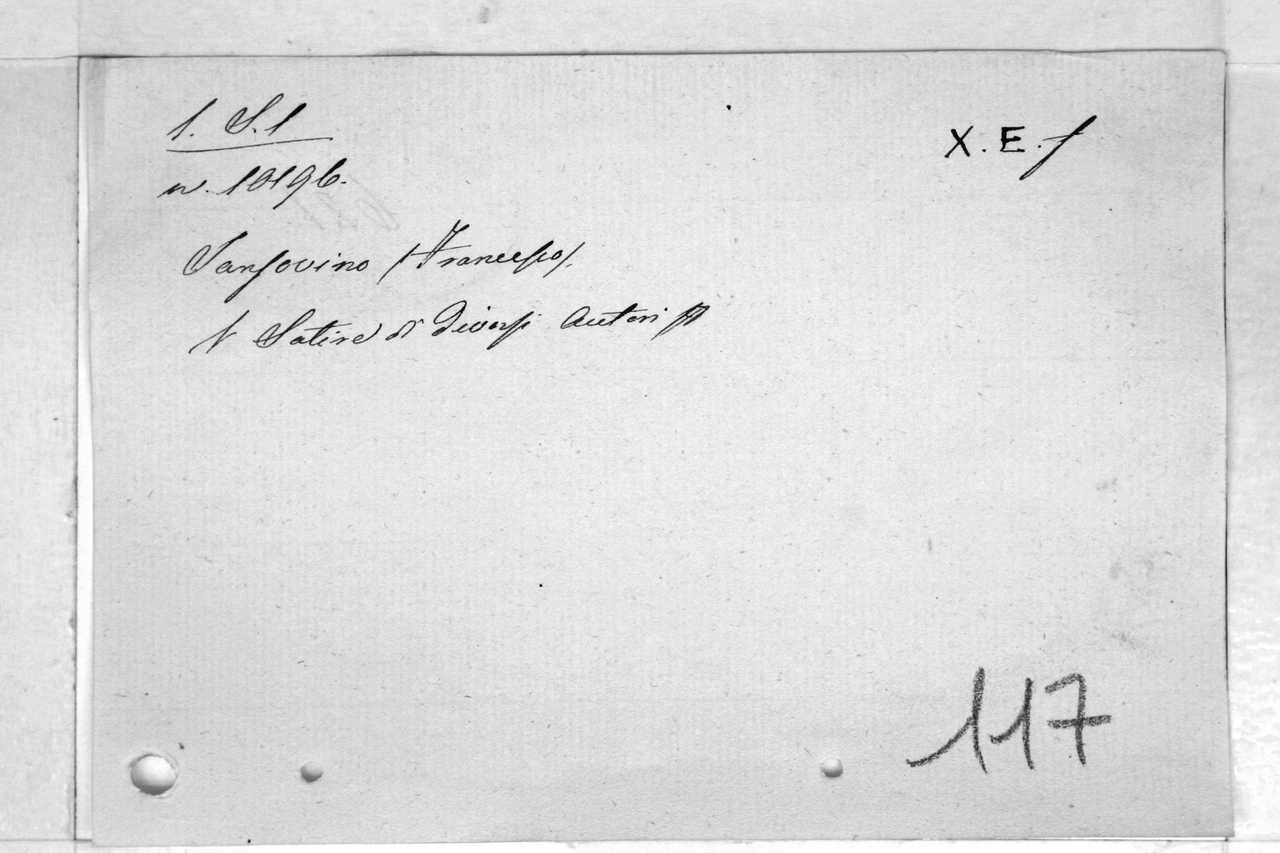 1. S. 1
X. E. f
n. 10196.
Sansovino (Francesco).
V Satire di diversi Autori
117